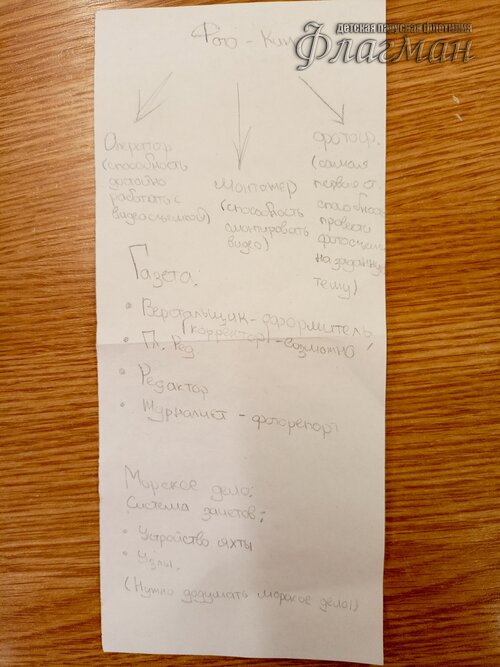 детская парусная флотилия
Флагман
Фото - Кин
Оператор
(способность
достойно
работать с
видеосъемкой)
Монтажер
(способность
смонтировать
видео)
фотогр.
(самая
первая ст.
способность
провести
фотосъем
на заданную
тему)
Газета:
• Верстальщик - оформитель
(корректор) - возможно
• Гл. Ред
• Редактор
• Журналист - фоторепорт
Морское дело:
Система зачетов:
• Устройство яхты
• Узлы.
(Нужно додумать морское дело!)